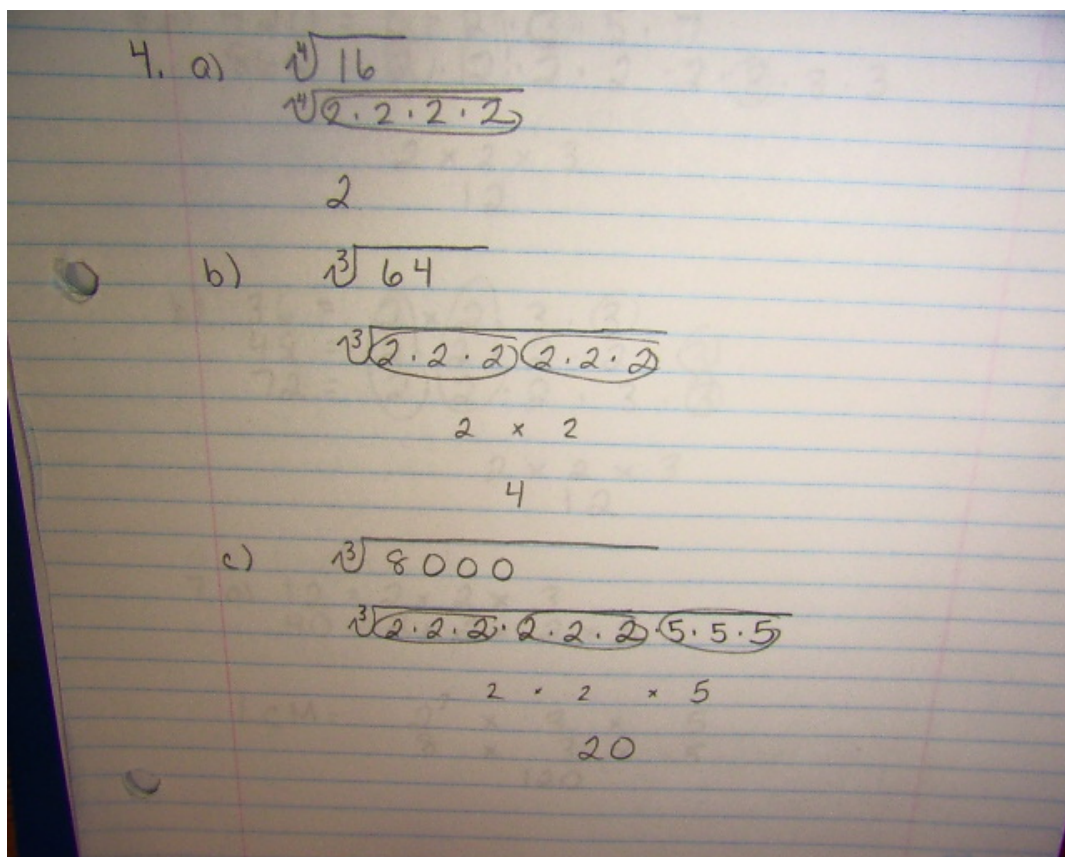 4. a) ∜16
∜2·2·2·2
2
b) ∛64
∛2·2·2 2·2·2
2 × 2
4
c) ∛8000
∛2·2·2·2·2·2·5·5·5
2 × 2 × 5
20